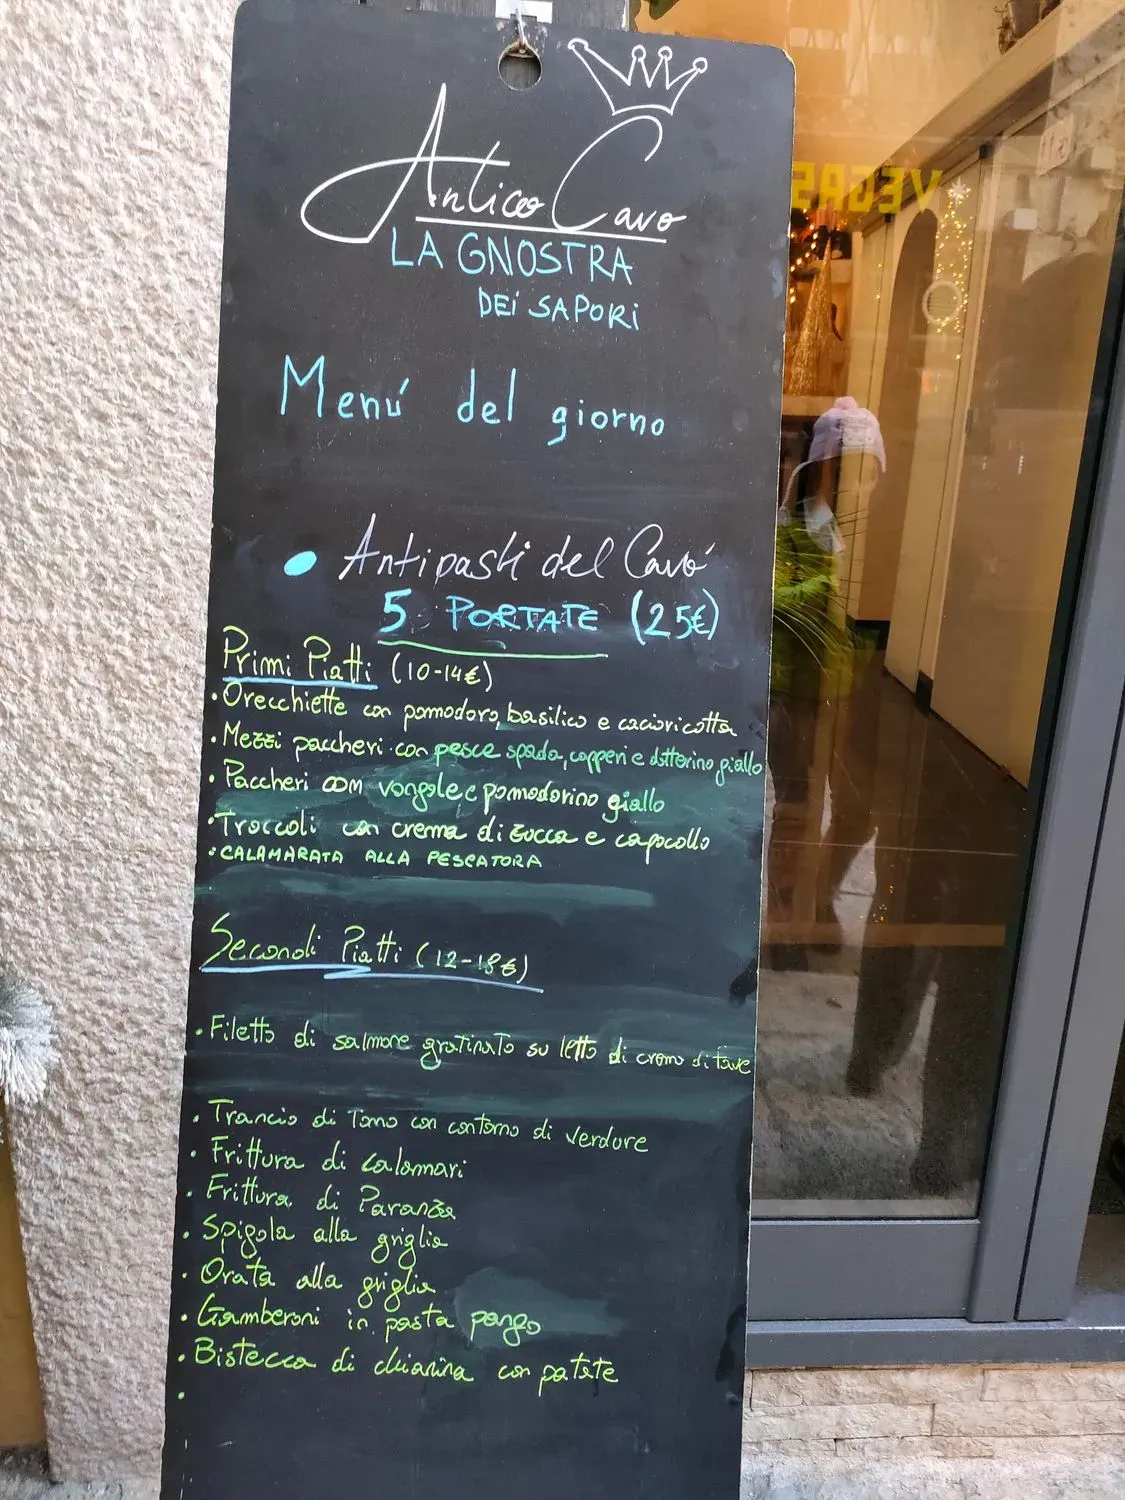 Antico Cavo
LA GNOSTRA
DEI SAPORI
Menú del giorno
• Antipasti del Cavó
5 PORTATE (25€)
Primi Piatti (10-14€)
• Orecchiette con pomodoro, basilico e cacioricotta
• Mezzi paccheri con pesce spada, capperi e datterino giallo
• Paccheri con vongole e pomodorino giallo
• Troccoli con crema di zucca e capocollo
• CALAMARATA ALLA PESCATORA
Secondi Piatti (12-18€)
• Filetto di salmone gratinato su letto di crema di fave
• Trancio di Tonno con contorno di verdure
• Frittura di calamari
• Frittura di Paranza
• Spigola alla griglia
• Orata alla griglia
• Gamberoni in pasta pango
• Bistecca di chianina con patate
•
VEGAS